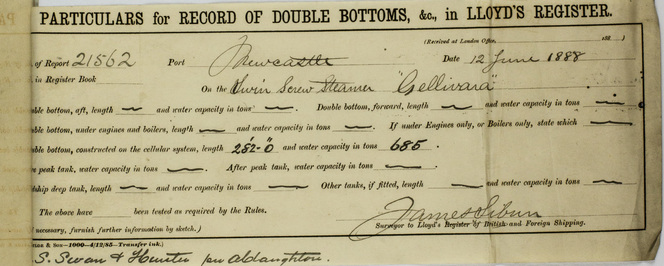 PARTICULARS for RECORD OF DOUBLE BOTTOMS, &c., in LLOYD'S REGISTER.
(Received at London Office, 188 )
of Report 21562 Port Newcastle Date 12 June 1888
in Register Book On the Twin Screw Steamer "Gellivara"
ble bottom, aft, length — and water capacity in tons — . Double bottom, forward, length — and water capacity in tons —
ble bottom, under engines and boilers, length — and water capacity in tons — . If under Engines only, or Boilers only, state which —
ble bottom, constructed on the cellular system, length 282'-0" and water capacity in tons 685 .
peak tank, water capacity in tons — . After peak tank, water capacity in tons —
ship deep tank, length — and water capacity in tons — Other tanks, if fitted, length — and water capacity in tons —
The above have been tested as required by the Rules.
James Sibun
( necessary, furnish further information by sketch.) Surveyor to Lloyd's Register of British and Foreign Shipping.
& Son—1000—4/12/85—Transfer ink.)
S. Swan & Hunter